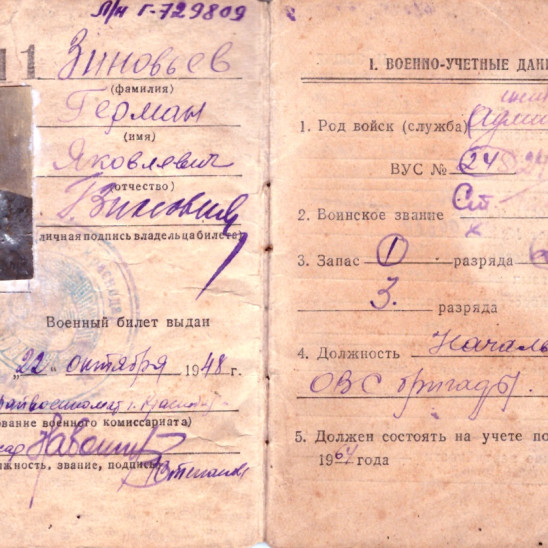 л/н Г-729809
Зиновьев
(фамилия)
Герман
(имя)
Яковлевич
(отчество)
(личная подпись владельца билета)
Военный билет выдан
„22" октября 1948 г.
ование военного комиссариата)
лжность, звание, подпись)
I. ВОЕННО-УЧЕТНЫЕ ДАН
1. Род войск (служба)
ВУС №
2. Воинское звание Ст.
3. Запас 1 разряда
3. разряда
4. Должность Началь
ОВС бригады.
5. Должен состоять на учете по
1964 года